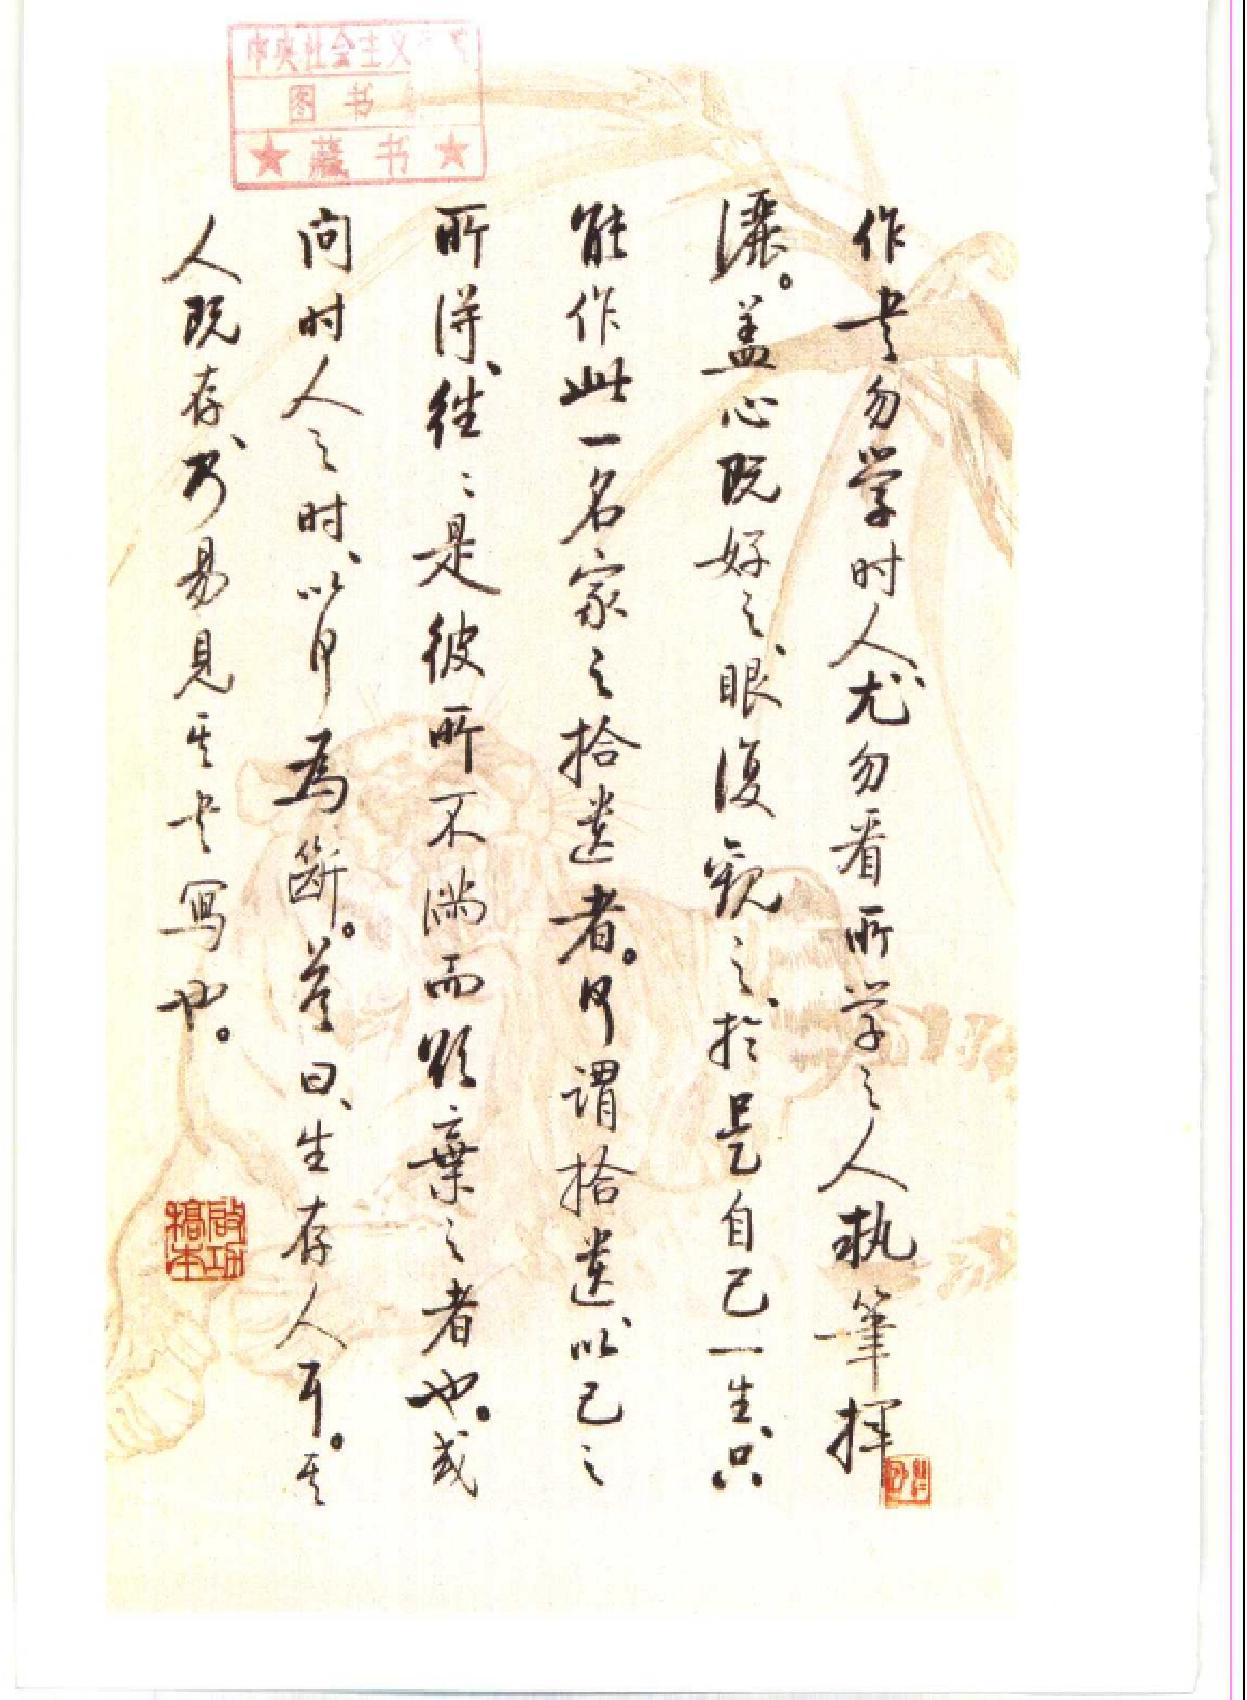 中央社会主义
图书
★藏书★
作书勿学时人尤勿看所学之人执笔挥
灑。盖心既好之、眼复观之、於是自己一生、只
能作此一名家之拾遗者。何谓拾遗、以己之
所得、往々是彼所不满而欲弃之者也。或
问时人之时、以何为断。答曰、生存人耳。其
人既存、乃易见其书写也。
启功